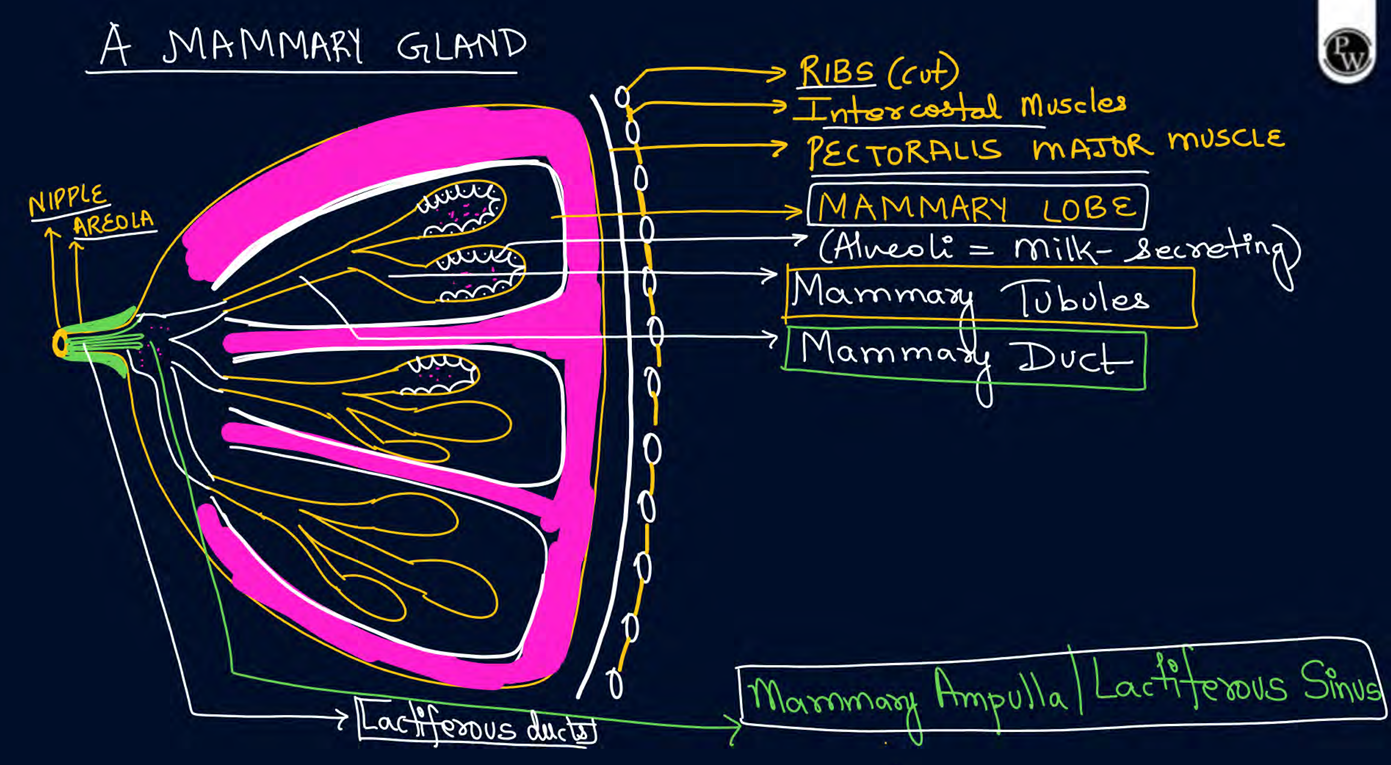 A MAMMARY GLAND
PW
RIBS (cut)
Intercostal Muscles
PECTORALIS MAJOR MUSCLE
NIPPLE
AREOLA
MAMMARY LOBE
(Alveoli = milk-secreting)
Mammary Tubules
Mammary Duct
Mammary Ampulla/Lactiferous Sinus
Lactiferous ducts